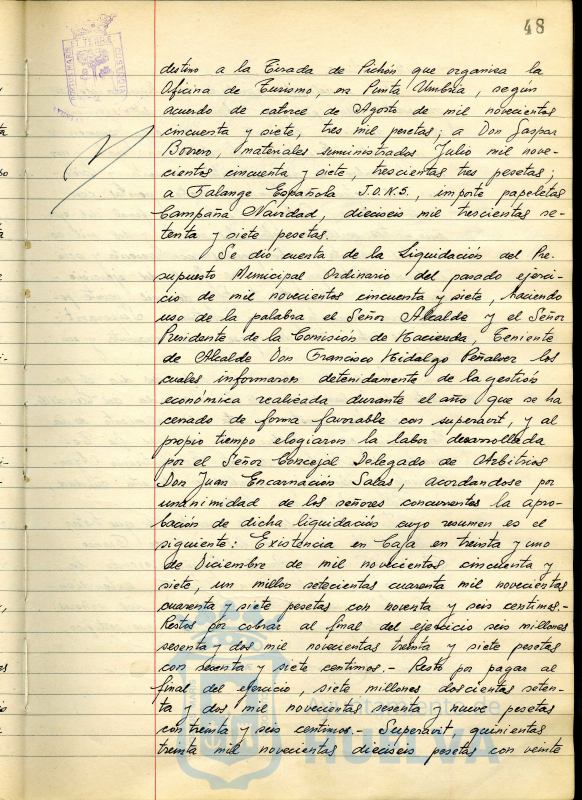 48
destino a la Tirada de Pichón que organiza la
Oficina de Turismo, en Punta Umbría, según
acuerdo de catorce de Agosto de mil novecientos
cincuenta y siete, tres mil pesetas; a Don Gaspar
Borrero, materiales suministrados Julio mil nove-
cientos cincuenta y siete, trescientas tres pesetas;
a Falange Española J.O.N.S., importe papeletas
Campaña Navidad, dieciseis mil trescientas se-
tenta y siete pesetas.
Se dió cuenta de la Liquidación del Pre-
supuesto Municipal Ordinario del pasado ejerci-
cio de mil novecientos cincuenta y siete, haciendo
uso de la palabra el Señor Alcalde y el Señor
Presidente de la Comisión de Hacienda, Teniente
de Alcalde Don Francisco Hidalgo Peñalver los
cuales informaron detenidamente de la gestión
económica realizada durante el año que se ha
cerrado de forma favorable con superavit, y al
propio tiempo elogiaron la labor desarrollada
por el Señor Concejal Delegado de Arbitrios
Don Juan Encarnación Salas, acordandose por
unanimidad de los señores concurrentes la apro-
bación de dicha liquidación cuyo resumen es el
siguiente: Existencia en Caja en treinta y uno
de Diciembre de mil novecientos cincuenta y
siete, un millon setecientas cuarenta mil novecientas
cuarenta y siete pesetas con noventa y seis centimos.-
Restos por cobrar al final del ejercicio seis millones
sesenta y dos mil novecientas treinta y siete pesetas
con sesenta y siete centimos.- Resto por pagar al
final del ejercicio, siete millones doscientas seten-
ta y dos mil novecientas sesenta y nueve pesetas
con treinta y seis centimos.- Superavit quinientas
treinta mil novecientas dieciseis pesetas con veinte
Ayuntamiento de
HUELVA